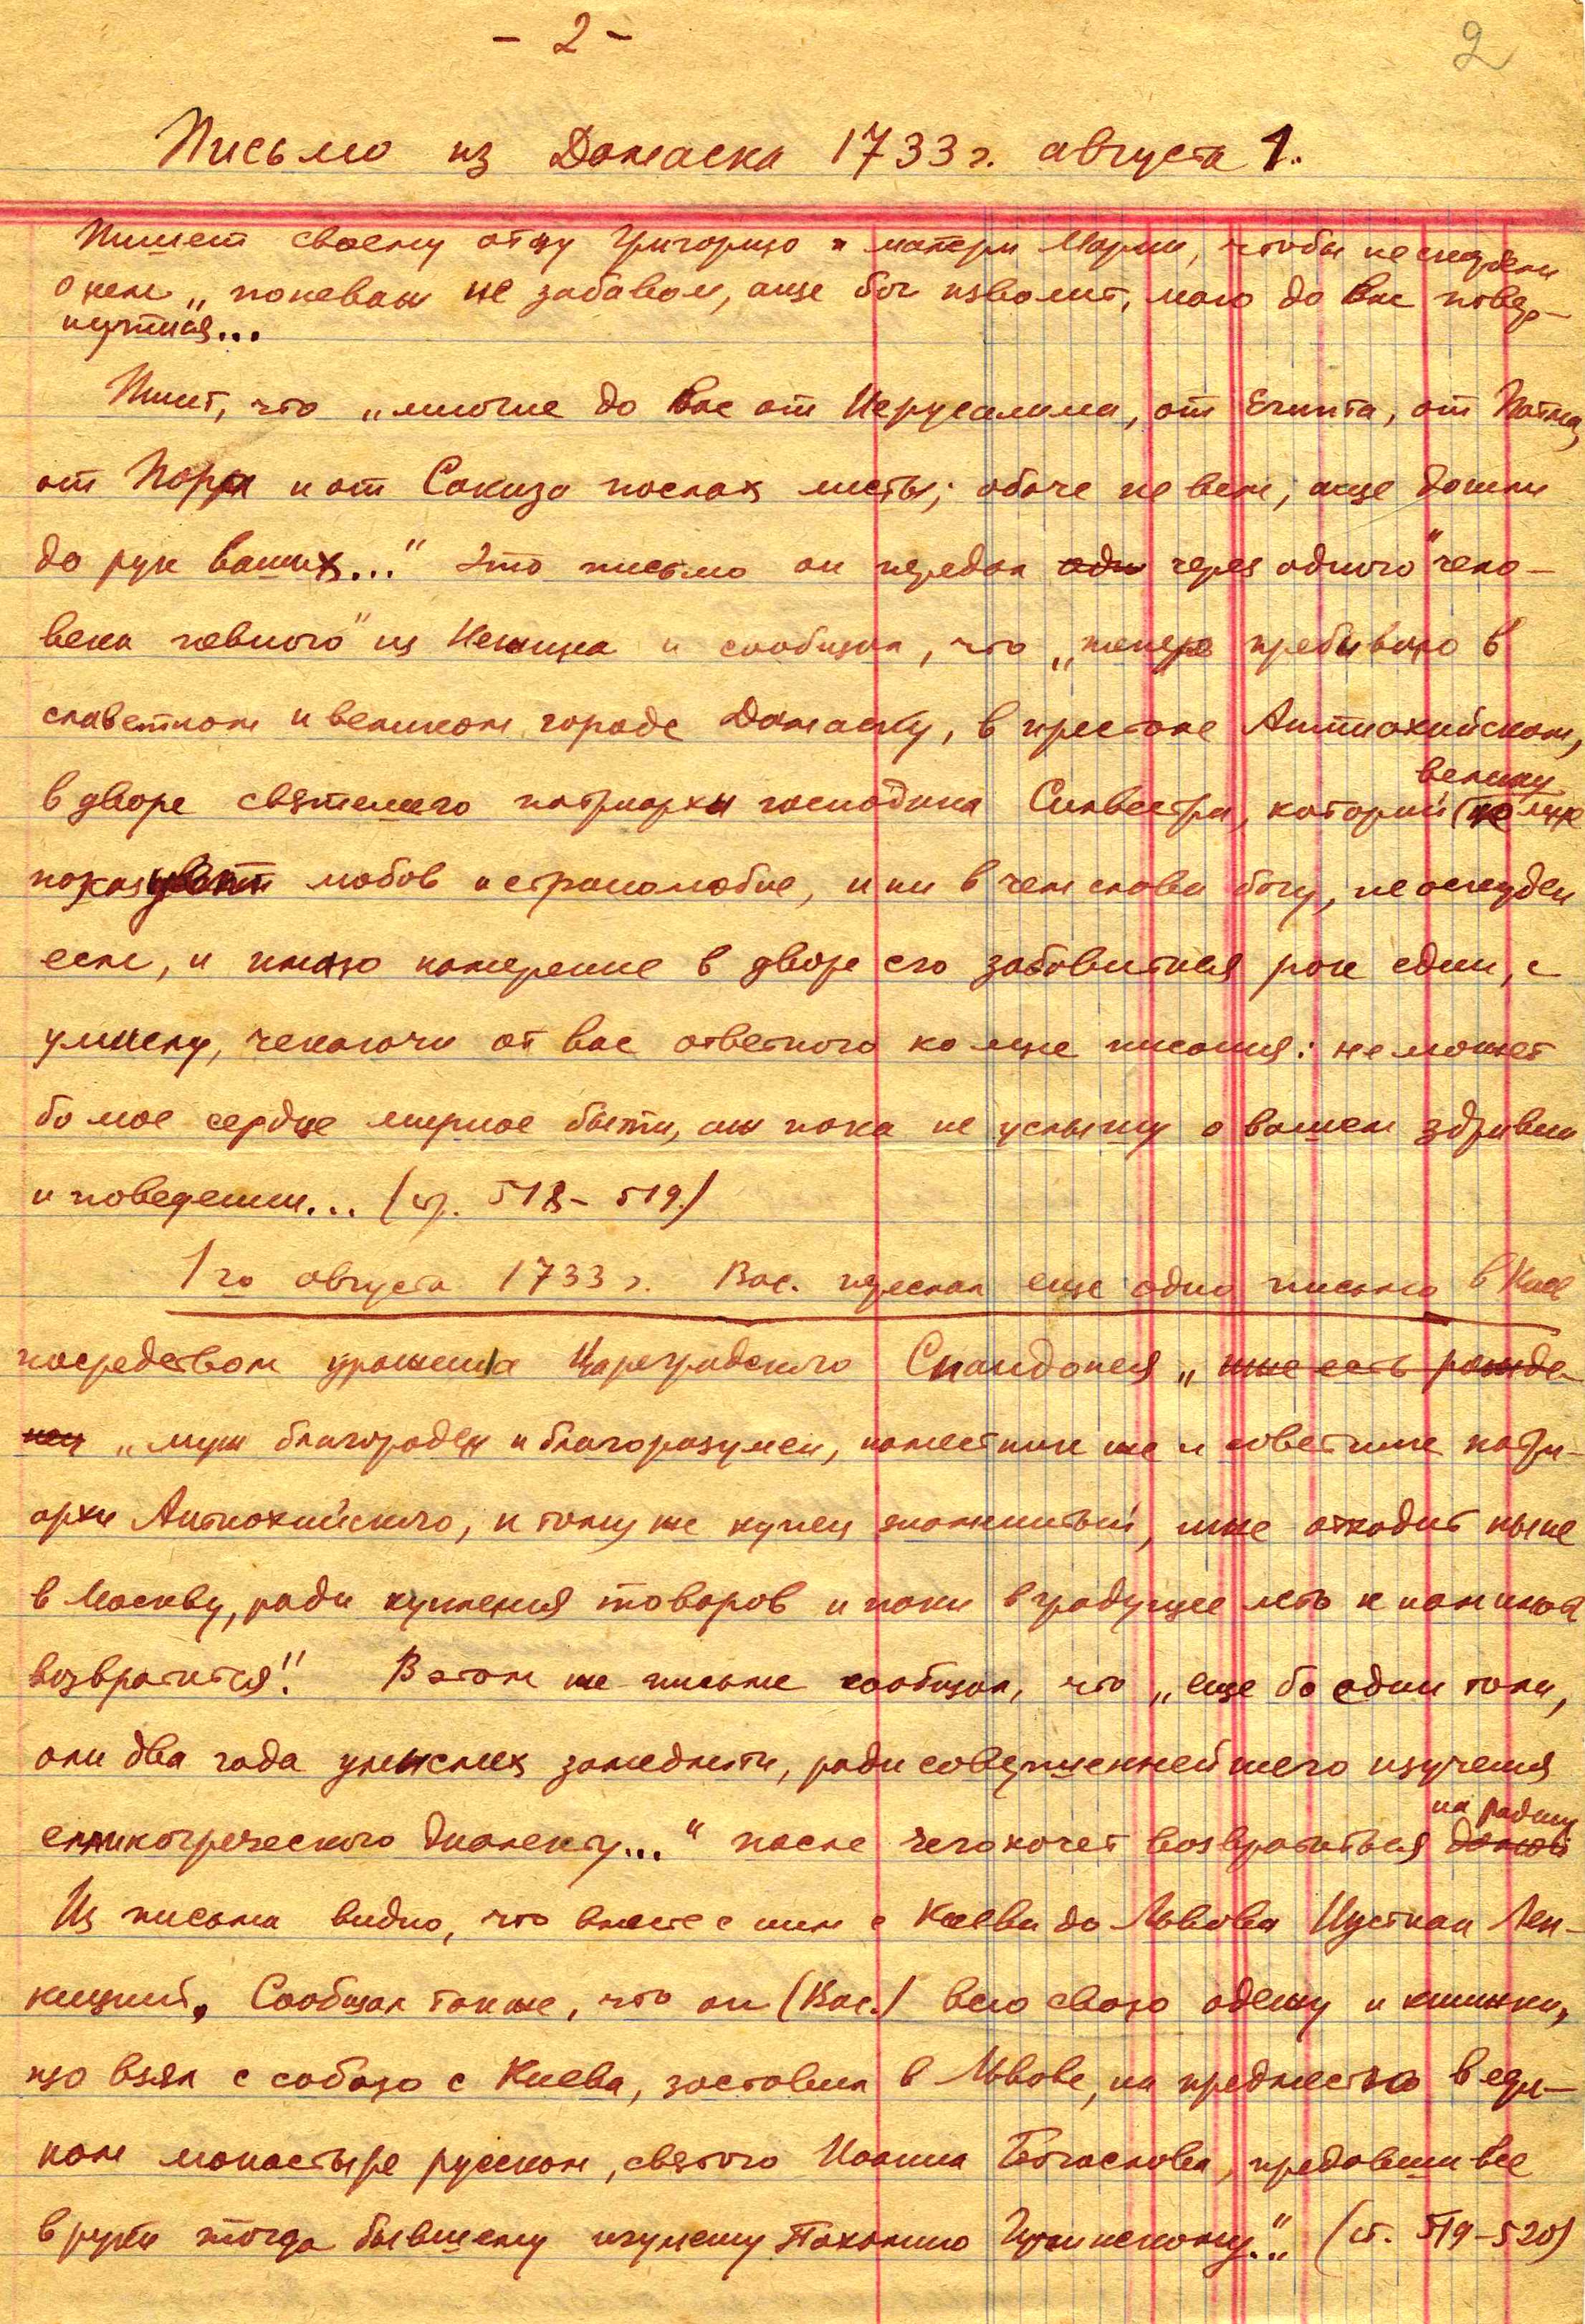 - 2 -
2
Письмо из Дамаска 1733 г. августа 1.
Пишет своему отцу Григорию и матери Марии, чтобы не скорбели
о нем „поневаж не забавом, аще бог изволит, маю до вас повер-
нутися...
Пишет, что „многие до вас от Иерусалима, от Египта, от Патма,
от и от Сакиза послах листы; обаче не вем, аще дошли
до рук ваших..." Это письмо он передал через одного "чело-
века певного" из Нежина и сообщил, что „теперь пребываю в
славетном и великом городе Дамаску, в престоле Антиохийском,
велику
в дворе святейшего патриархи господина Силвестра, который ко мне
показует любов и страннолюбие, и ни в чем слава богу, не оскуден
есмь, и имаю намерение в дворе его забавитися рок един, с
умыслу, чекаючи от вас ответного ко мне писания: не может
бо мое сердце мирное быти, аж пока не услышу о вашем здравии
и поведении... (ст. 518-519)
1го августа 1733 г. Вас. переслал еще одно письмо в Киев
посредством урожения Цареградского Спандонея „иже есть рожде-
нец „муж благороден и благоразумен, наместник же и советник патри-
архи Антиохийского, к тому же купец знаменитый, иже отходит ныне
в Москву, ради купления товаров и паки в градущее лето к нам имат
возвратится". В этом же письме сообщил, что „еще бо един токи,
или два года умыслих замедлити, ради совершеннейшего изучения
на родину
еллиногреческого диалекту..." после чего хочет возвратиться домой
Из письма видно, что вместе с ним с Киева до Львова Иустиан Лен-
кицкий. Сообщал также, что он (Вас.) всю свою одежу и книжки,
що взял с собою с Киева, заставил в Львове, на предместю в еди-
ном монастыре руском, святого Иоанна Богослова, предавши все
в руки тогда бывшему игумену Пахомию ..." (ст. 519-520)